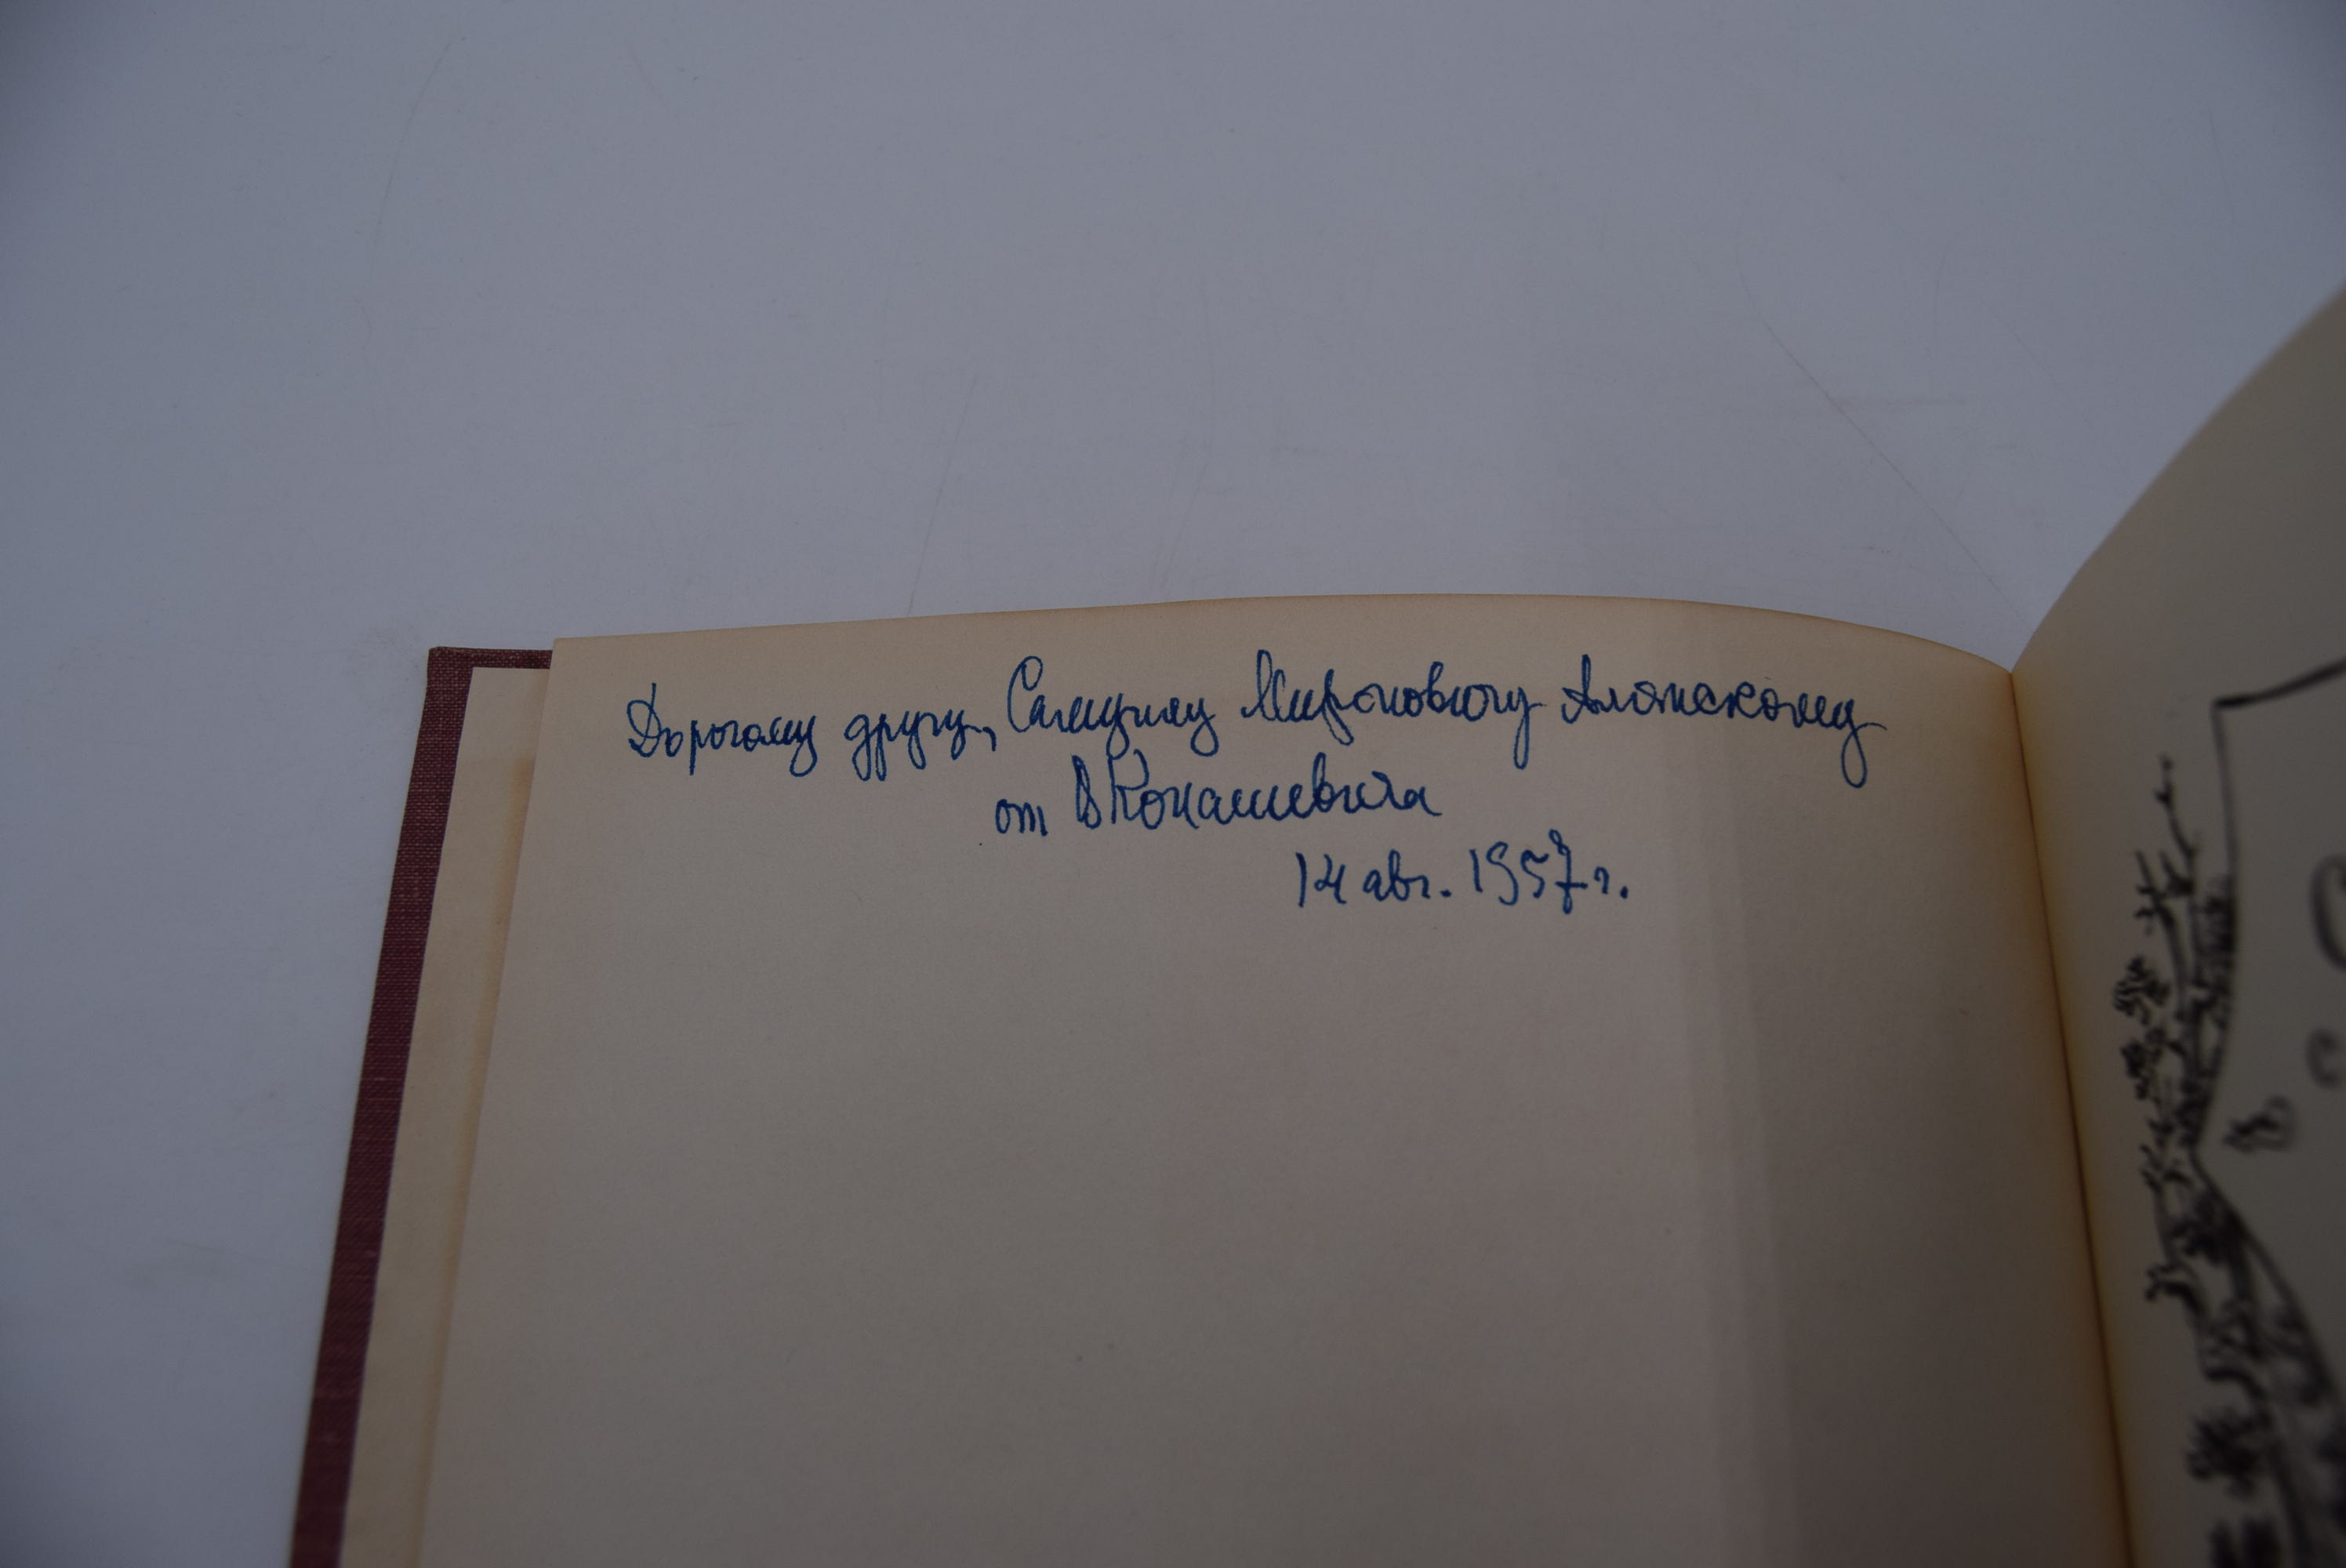 Дорогому другу, Самуилу Мироновичу Алянскому
от В Конашевича
14 авг. 1957 г.